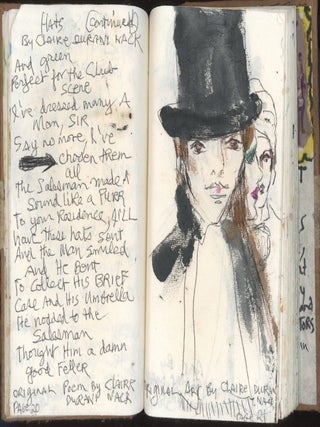 Hats (Continued)
By Claire Durand Wack
And green
Perfect for the Club
Scene
I've dressed many A
Man, SIR
Say no more, I've
chosen them
all
the Salesman made A
Sound like a PURR
To your Residence, I'll
have these hats Sent
And the Man Smiled
And He Bent
To Collect His BRIEF
Case And His Umbrella
He nodded to the
Salesman
Thought Him a damn
good Feller
ORIGINAL Poem By CLAIRE
PAGE 20 DURAND WACK
ORIGINAL ART By CLAIRE DURAND
WACK
PAGE 21